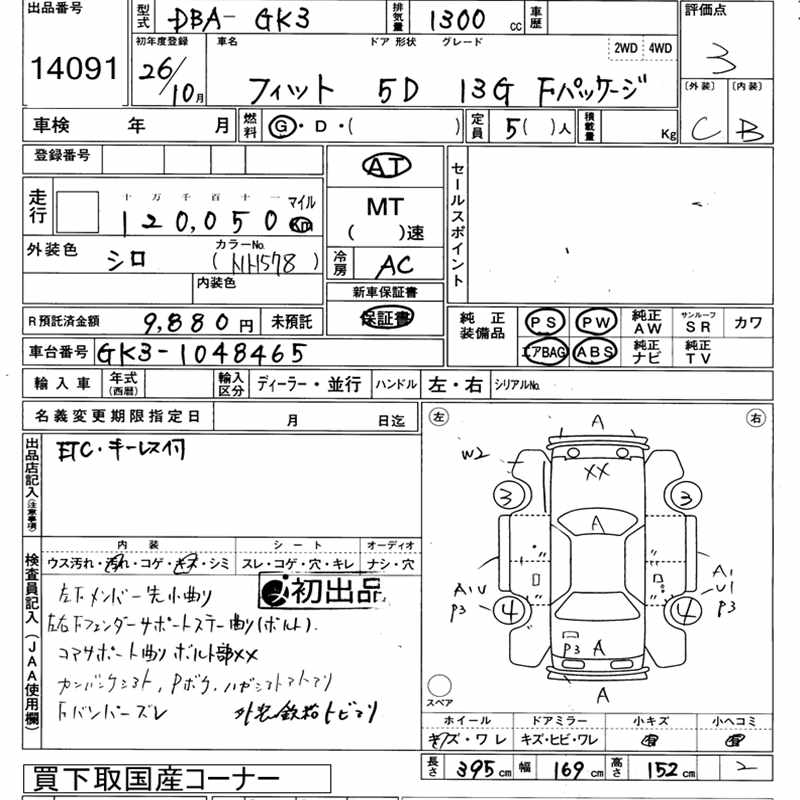 出品番号 型式 DBA- GK3 排気量 1300 cc 車歴 評価点
14091 3
初年度登録 車名 ドア 形状 グレード 2WD 4WD
26/10月 フィット 5D 13G Fパッケージ
〔外装〕 〔内装〕
C B
車検 年 月 燃料 G・D・( ) 定員 5( )人 積載量 Kg
登録番号 AT セールスポイント
走行 十 万 千 百 十 一 マイル
120,050 Km
MT
( )速
外装色 シロ カラーNo. (NH578)
冷房 AC
内装色
新車保証書
R預託済金額 9,880円 未預託 保証書
純正装備品 PS PW 純正AW サンルーフSR カワ
エアBAG ABS 純正ナビ 純正TV
車台番号 GK3-1048465
輸入車 年式(西暦) 輸入区分 ディーラー・並行 ハンドル 左・右 シリアルNo.
名義変更期限指定日 月 日迄
左 右
出品店記入(注意事項)
ETC・キーレス付
A
W2
XX
3 3
A
A1U P3
4 4
A1 U1 P3
P3 A
A
スペア
検査員記入(JAA使用欄)
内装 シート オーディオ
ウス汚れ・汚れ・コゲ・キズ・シミ スレ・コゲ・穴・キレ ナシ・穴
初出品
左下メンバー先小曲り
左右下フェンダーサポートステー曲り(ボルト).
コアサポート曲り ボルト部XX
Fバンパーズレ
ホイール ドアミラー 小キズ 小ヘコミ
キズ・ワレ キズ・ヒビ・ワレ
長さ 395cm 幅 169cm 高さ 152cm 2
買下取国産コーナー